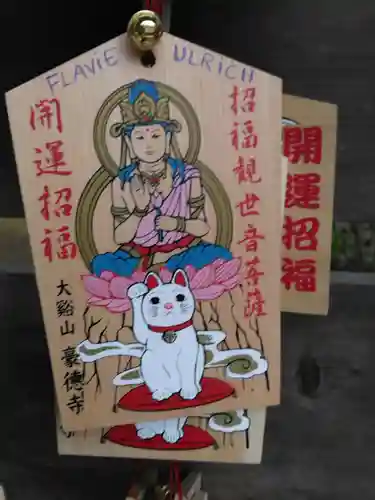 FLAVIE ULRICH
招福観世音菩薩
開運招福
大谿山 豪徳寺
開運招福